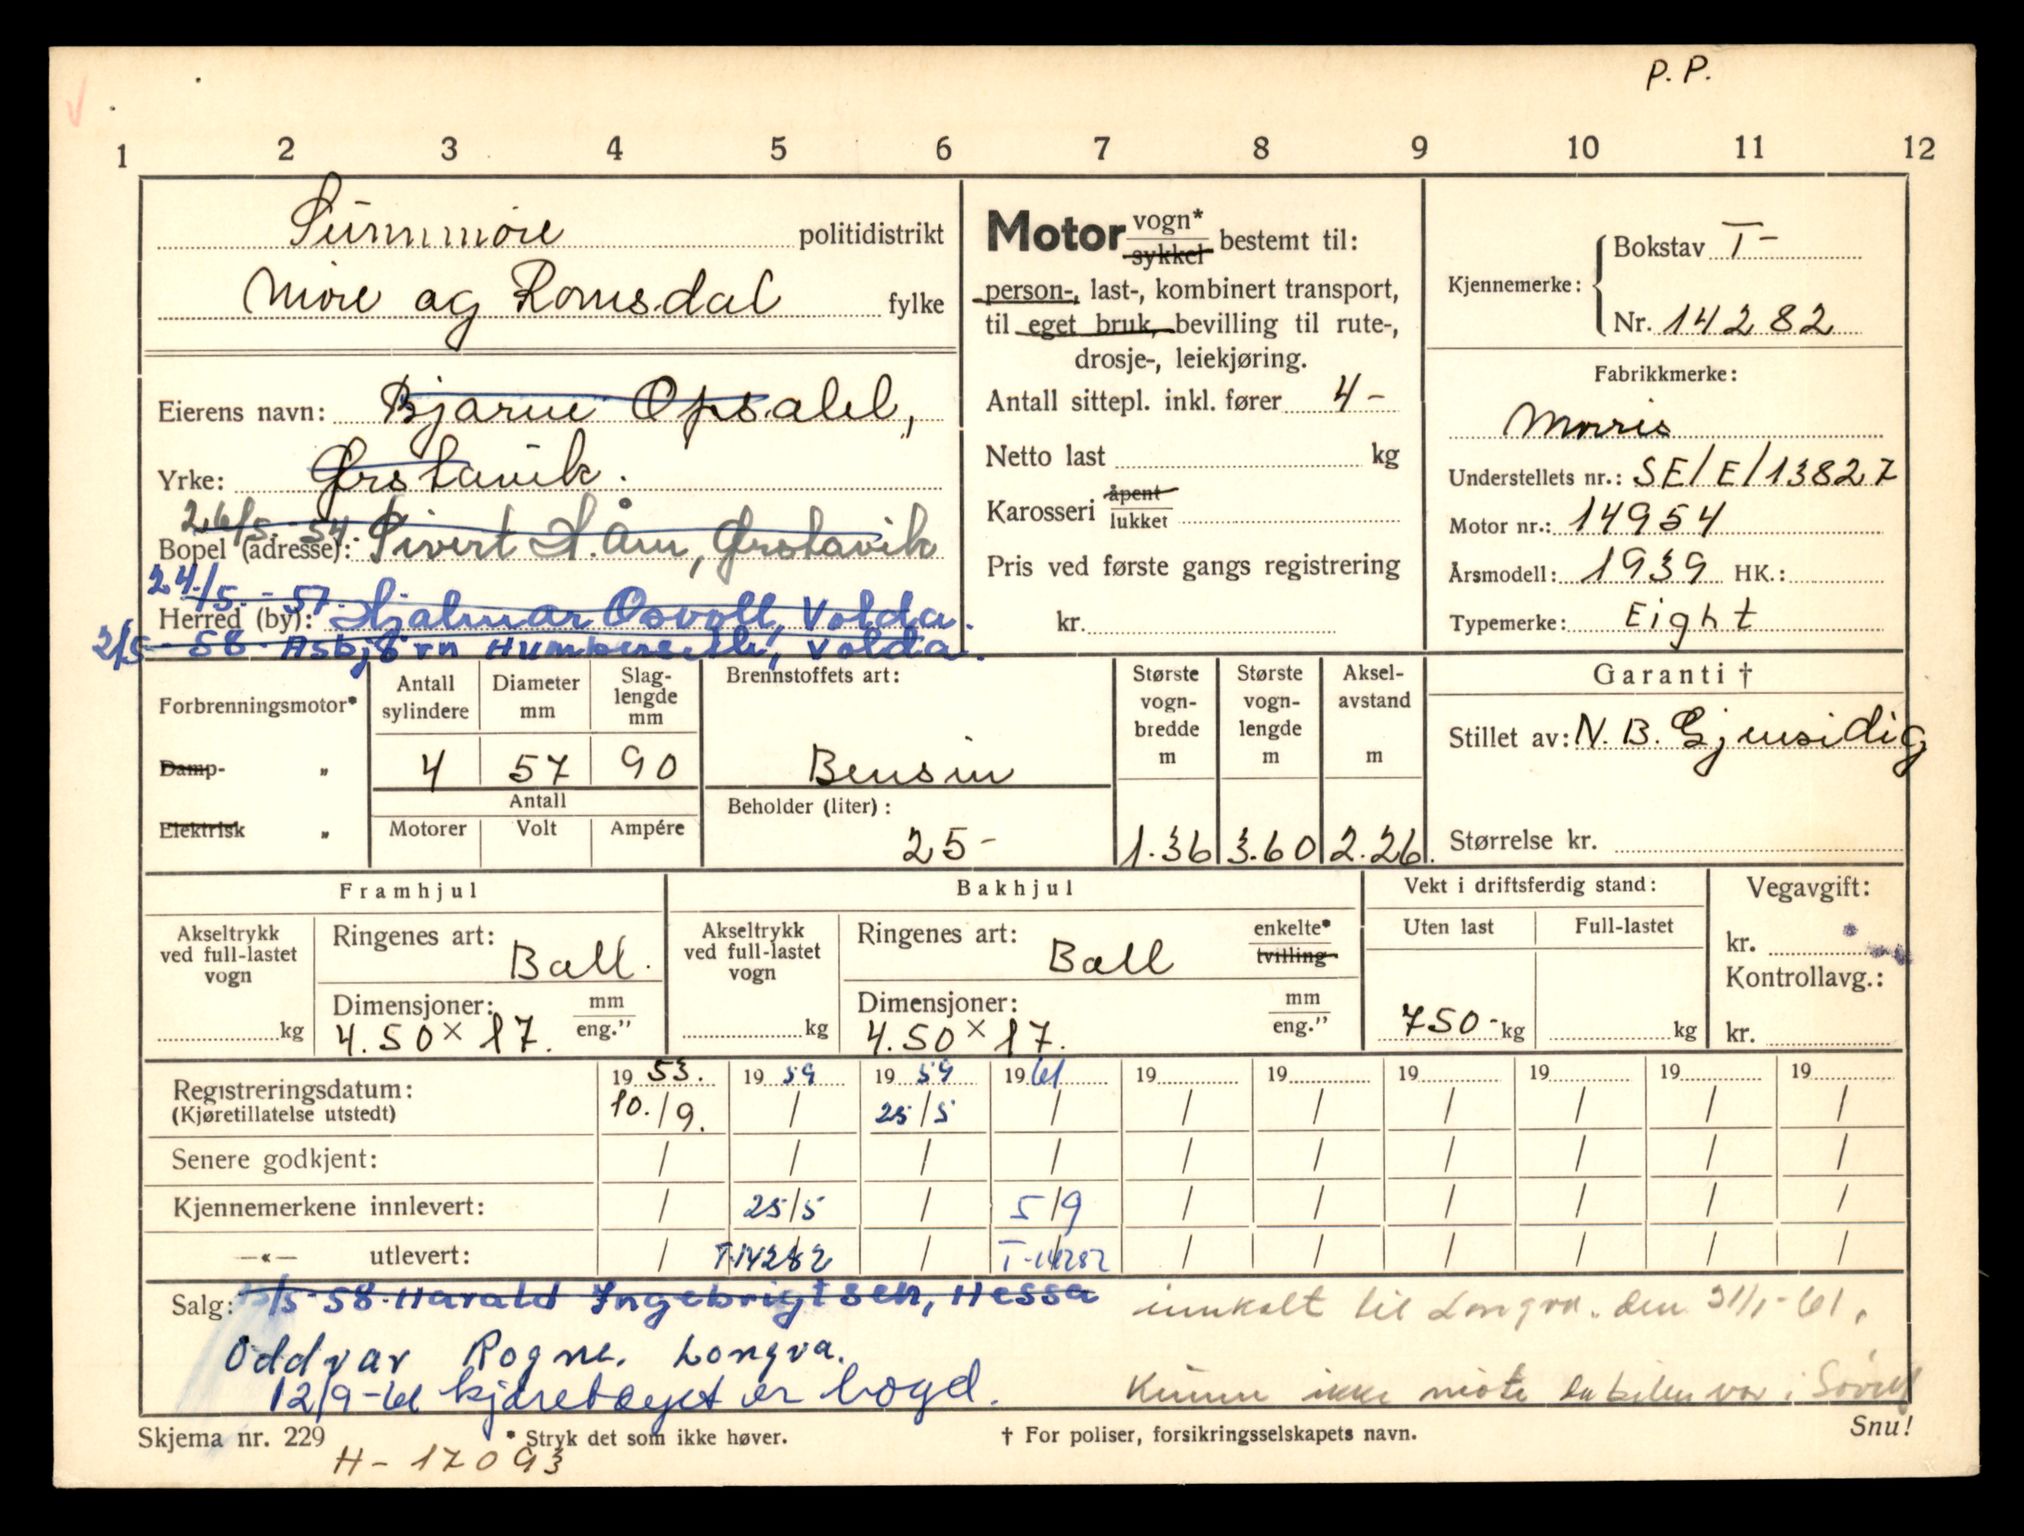 P. P.
1 2 3 4 5 6 7 8 9 10 11 12
Sunnmøre politidistrikt
Møre og Romsdal fylke
Eierens navn: Bjarne Opsahl,
Yrke: Ørstavik.
26/5-54. Sivert A. Åm, Ørstavik
Bopel (adresse):
24./5.-57. Hjalmar Osvoll, Volda.
Herred (by):
2/5-58. Asbjørn Humberseth, Volda.
Motor vogn* sykkel bestemt til:
person-, last-, kombinert transport,
til eget bruk, bevilling til rute-,
drosje-, leiekjøring.
Antall sittepl. inkl. fører 4-
Netto last kg
Karosseri åpent lukket
Pris ved første gangs registrering
kr.
Kjennemerke: Bokstav T-
Nr. 14282
Fabrikkmerke:
Morris
Understellets nr.: SE/E/13827
Motor nr.: 14954
Årsmodell: 1939 HK.:
Typemerke: Eight
Forbrenningsmotor*
Damp- „
Elektrisk „
Antall sylindere
Diameter mm
Slag-lengde mm
4 57 90
Antall
Motorer Volt Ampére
Brennstoffets art:
Bensin
Beholder (liter):
25-
Største vogn-bredde m
Største vogn-lengde m
Aksel-avstand m
1.36 3.60 2.26.
Garanti †
Stillet av: N. B. Gjensidig
Størrelse kr.
Framhjul
Akseltrykk ved full-lastet vogn
kg
Ringenes art: Ball.
Dimensjoner: mm eng.”
4.50 × 17.
Bakhjul
Akseltrykk ved full-lastet vogn
kg
Ringenes art: Ball enkelte* tvilling
Dimensjoner: mm eng.”
4.50 × 17.
Vekt i driftsferdig stand:
Uten last Full-lastet
750- kg kg
Vegavgift:
kr.
Kontrollavg.:
kr.
Registreringsdatum: 19 53. 19 59 19 59 19 61 19 19 19 19 19 19
(Kjøretillatelse utstedt) 10./9. / 25/5 / / / / / / /
Senere godkjent: / / / / / / / / / /
Kjennemerkene innlevert: / 25/5 / 5/9 / / / / / /
—«— utlevert: / T-14282 / T-14282 / / / / / /
Salg: /5-58. Harald Ingebrigtsen, Hessa
innkalt til Longva. den 31/1-61.
Oddvar Rogne. Longva.
12/9-61 kjøretøyet er hogd.
Kunne ikke møte da bilen var i Søvik
Skjema nr. 229
* Stryk det som ikke høver.
† For poliser, forsikringsselskapets navn.
Snu!
H-17093